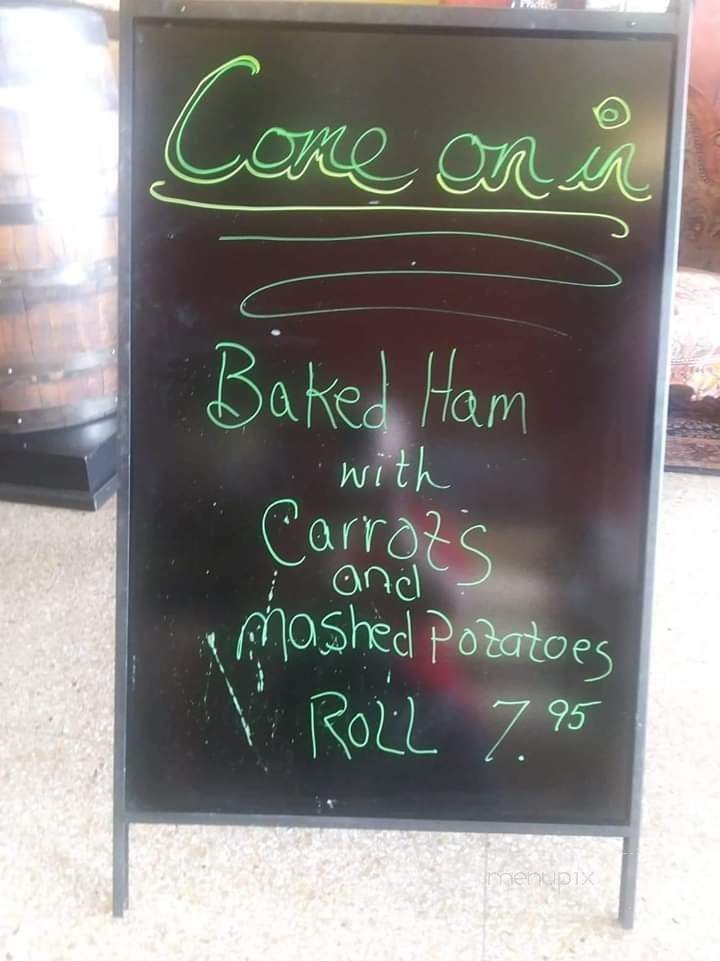 Photos
Come on in
Baked Ham
with
Carrots
and
mashed Potatoes
ROLL 7.95
menupix